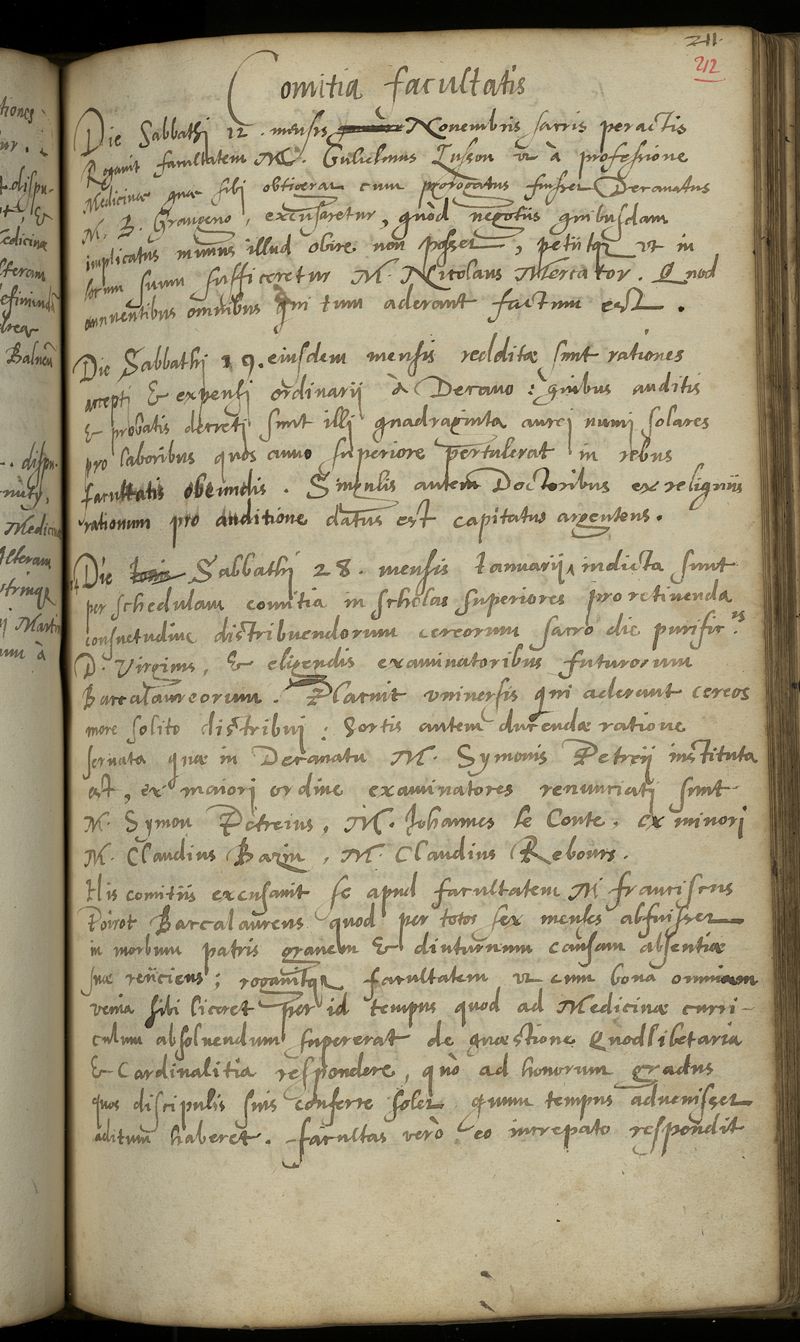 211.
212
Comitia facultatis
Die Sabbathj 12. mensis Nouembris sacris peractis
Rogauit facultatem M. Gulielmus Lusson vt à professione
Medicinæ quæ sibi obtigerat cum prorogatus fuisset Decanatus
M. B. Grangeno, excusaretur, quòd negotiis quibusdam
implicatus munus illud obire non posset, petiitq; vt in
locum suum sufficeretur M. Nicolaus Mercator. Quod
annuentibus omnibus qui tum aderant factum est.
Die Sabbathj 19. eiusdem mensis redditæ sunt rationes
accepti & expensj ordinarij à Decano: quibus auditis
& probatis decretj sunt illj quadraginta aurej numj solares
pro laboribus quos anno superiore pertulerat in rebus
facultatis obeundis. Singulis autem Doctoribus ex reliquiis
rationum pro auditione datus est capitatus argenteus.
Die Sabbathj 28. mensis Ianuarij indicta sunt
per schedulam comitia in scholas superiores pro retinenda
consuetudine distribuendorum cereorum sacro die purific.nis
D. Virginis, & eligendis examinatoribus futurorum
Baccalaureorum. Placuit vniuersis qui aderant cereos
more solito distribuj: Sortis autem ducendæ ratione
seruata quæ in Decanatu M. Symonis Petreij instituta
est, ex maiorj ordine examinatores renunciatj sunt
M. Symon Petreius, M. Johannes le Conte. ex minorj
M. Claudius Bazin, M. Claudius Rebours.
His comitiis excusauit se apud facultatem M franciscus
Poirot Baccalaureus quod per totos sex menses abfuisset
in morbum patris grauem & diuturnum causam absentiæ
suæ reiiciens; rogauitq; facultatem vt cum bona omnium
venia sibi liceret per id tempus quod ad Medicinæ curri-
culum absoluendum supererat de quæstione Quodlibetaria
& Cardinalitia respondere, quò ad honorum gradus
quos discipulis suis conferre solet quum tempus aduenisset
aditum haberet. facultas verò eo increpato respondit